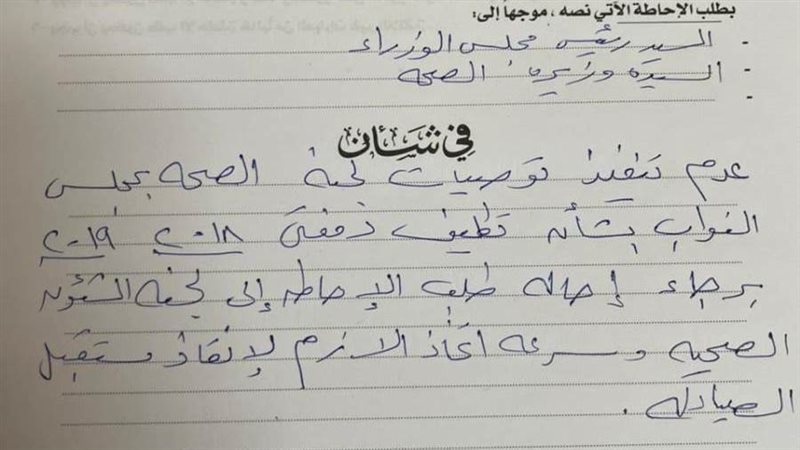 بطلب الإحاطة الآتي نصه ، موجها إلى:
- السيد رئيس مجلس الوزراء
- السيدة وزيرة الصحه
-
في شأن
عدم تنفيذ توصيات لجنة الصحه بمجلس
النواب بشأن تكليف دفعتى ٢٠١٨ ٢٠١٩
برجاء إحاله طلب الإحاطه إلى لجنه الشئون
الصحيه وسرعه اتخاذ الازم لإنقاذ مستقبل
الصيادله .